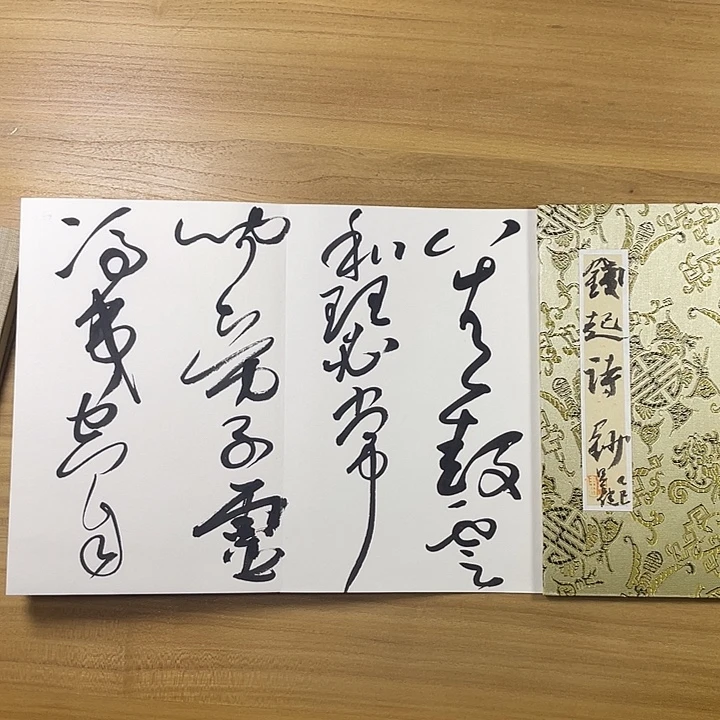 錢起詩鈔
乙巳
善鼓雲
和瑟常
聞帝子靈
馮夷空自